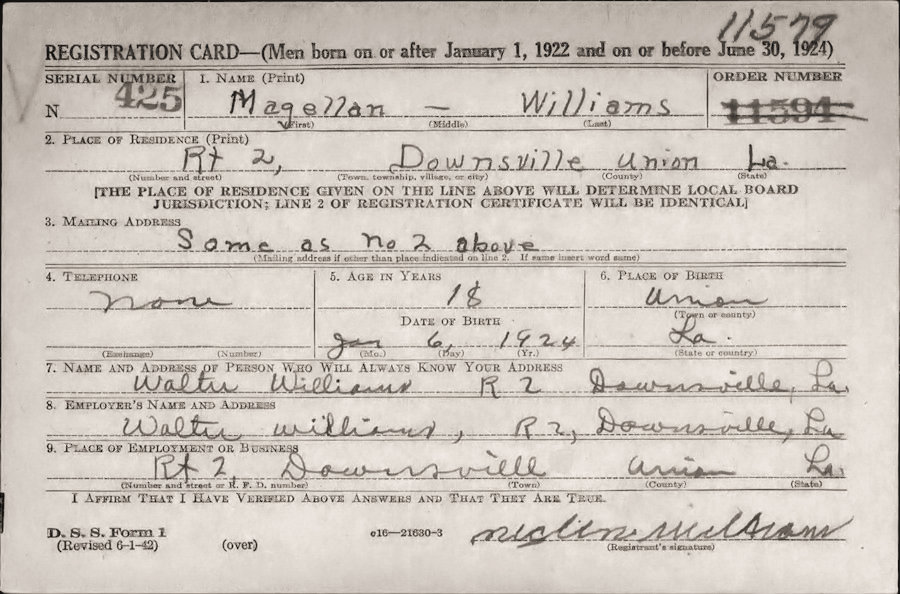 11579
REGISTRATION CARD—(Men born on or after January 1, 1922 and on or before June 30, 1924)
SERIAL NUMBER
1. NAME (Print)
ORDER NUMBER
N 425
Magellan — Williams
11594
(First) (Middle) (Last)
2. PLACE OF RESIDENCE (Print)
Rt 2, Downsville Union La.
(Number and street) (Town, township, village, or city) (County) (State)
[THE PLACE OF RESIDENCE GIVEN ON THE LINE ABOVE WILL DETERMINE LOCAL BOARD
JURISDICTION; LINE 2 OF REGISTRATION CERTIFICATE WILL BE IDENTICAL]
3. MAILING ADDRESS
Same as No 2 above
(Mailing address if other than place indicated on line 2. If same insert word same)
4. TELEPHONE
5. AGE IN YEARS
6. PLACE OF BIRTH
None
18
Union
(Town or county)
DATE OF BIRTH
Jan 6, 1924
La.
(Exchange) (Number)
(Mo.) (Day) (Yr.)
(State or country)
7. NAME AND ADDRESS OF PERSON WHO WILL ALWAYS KNOW YOUR ADDRESS
Walter Williams R 2 Downsville, La.
8. EMPLOYER'S NAME AND ADDRESS
Walter Williams, R 2, Downsville, La
9. PLACE OF EMPLOYMENT OR BUSINESS
Rt 2, Downsville Union La.
(Number and street or R. F. D. number) (Town) (County) (State)
I AFFIRM THAT I HAVE VERIFIED ABOVE ANSWERS AND THAT THEY ARE TRUE.
D. S. S. Form 1
(Revised 6-1-42) (over)
c16—21630-3
(Registrant's signature)